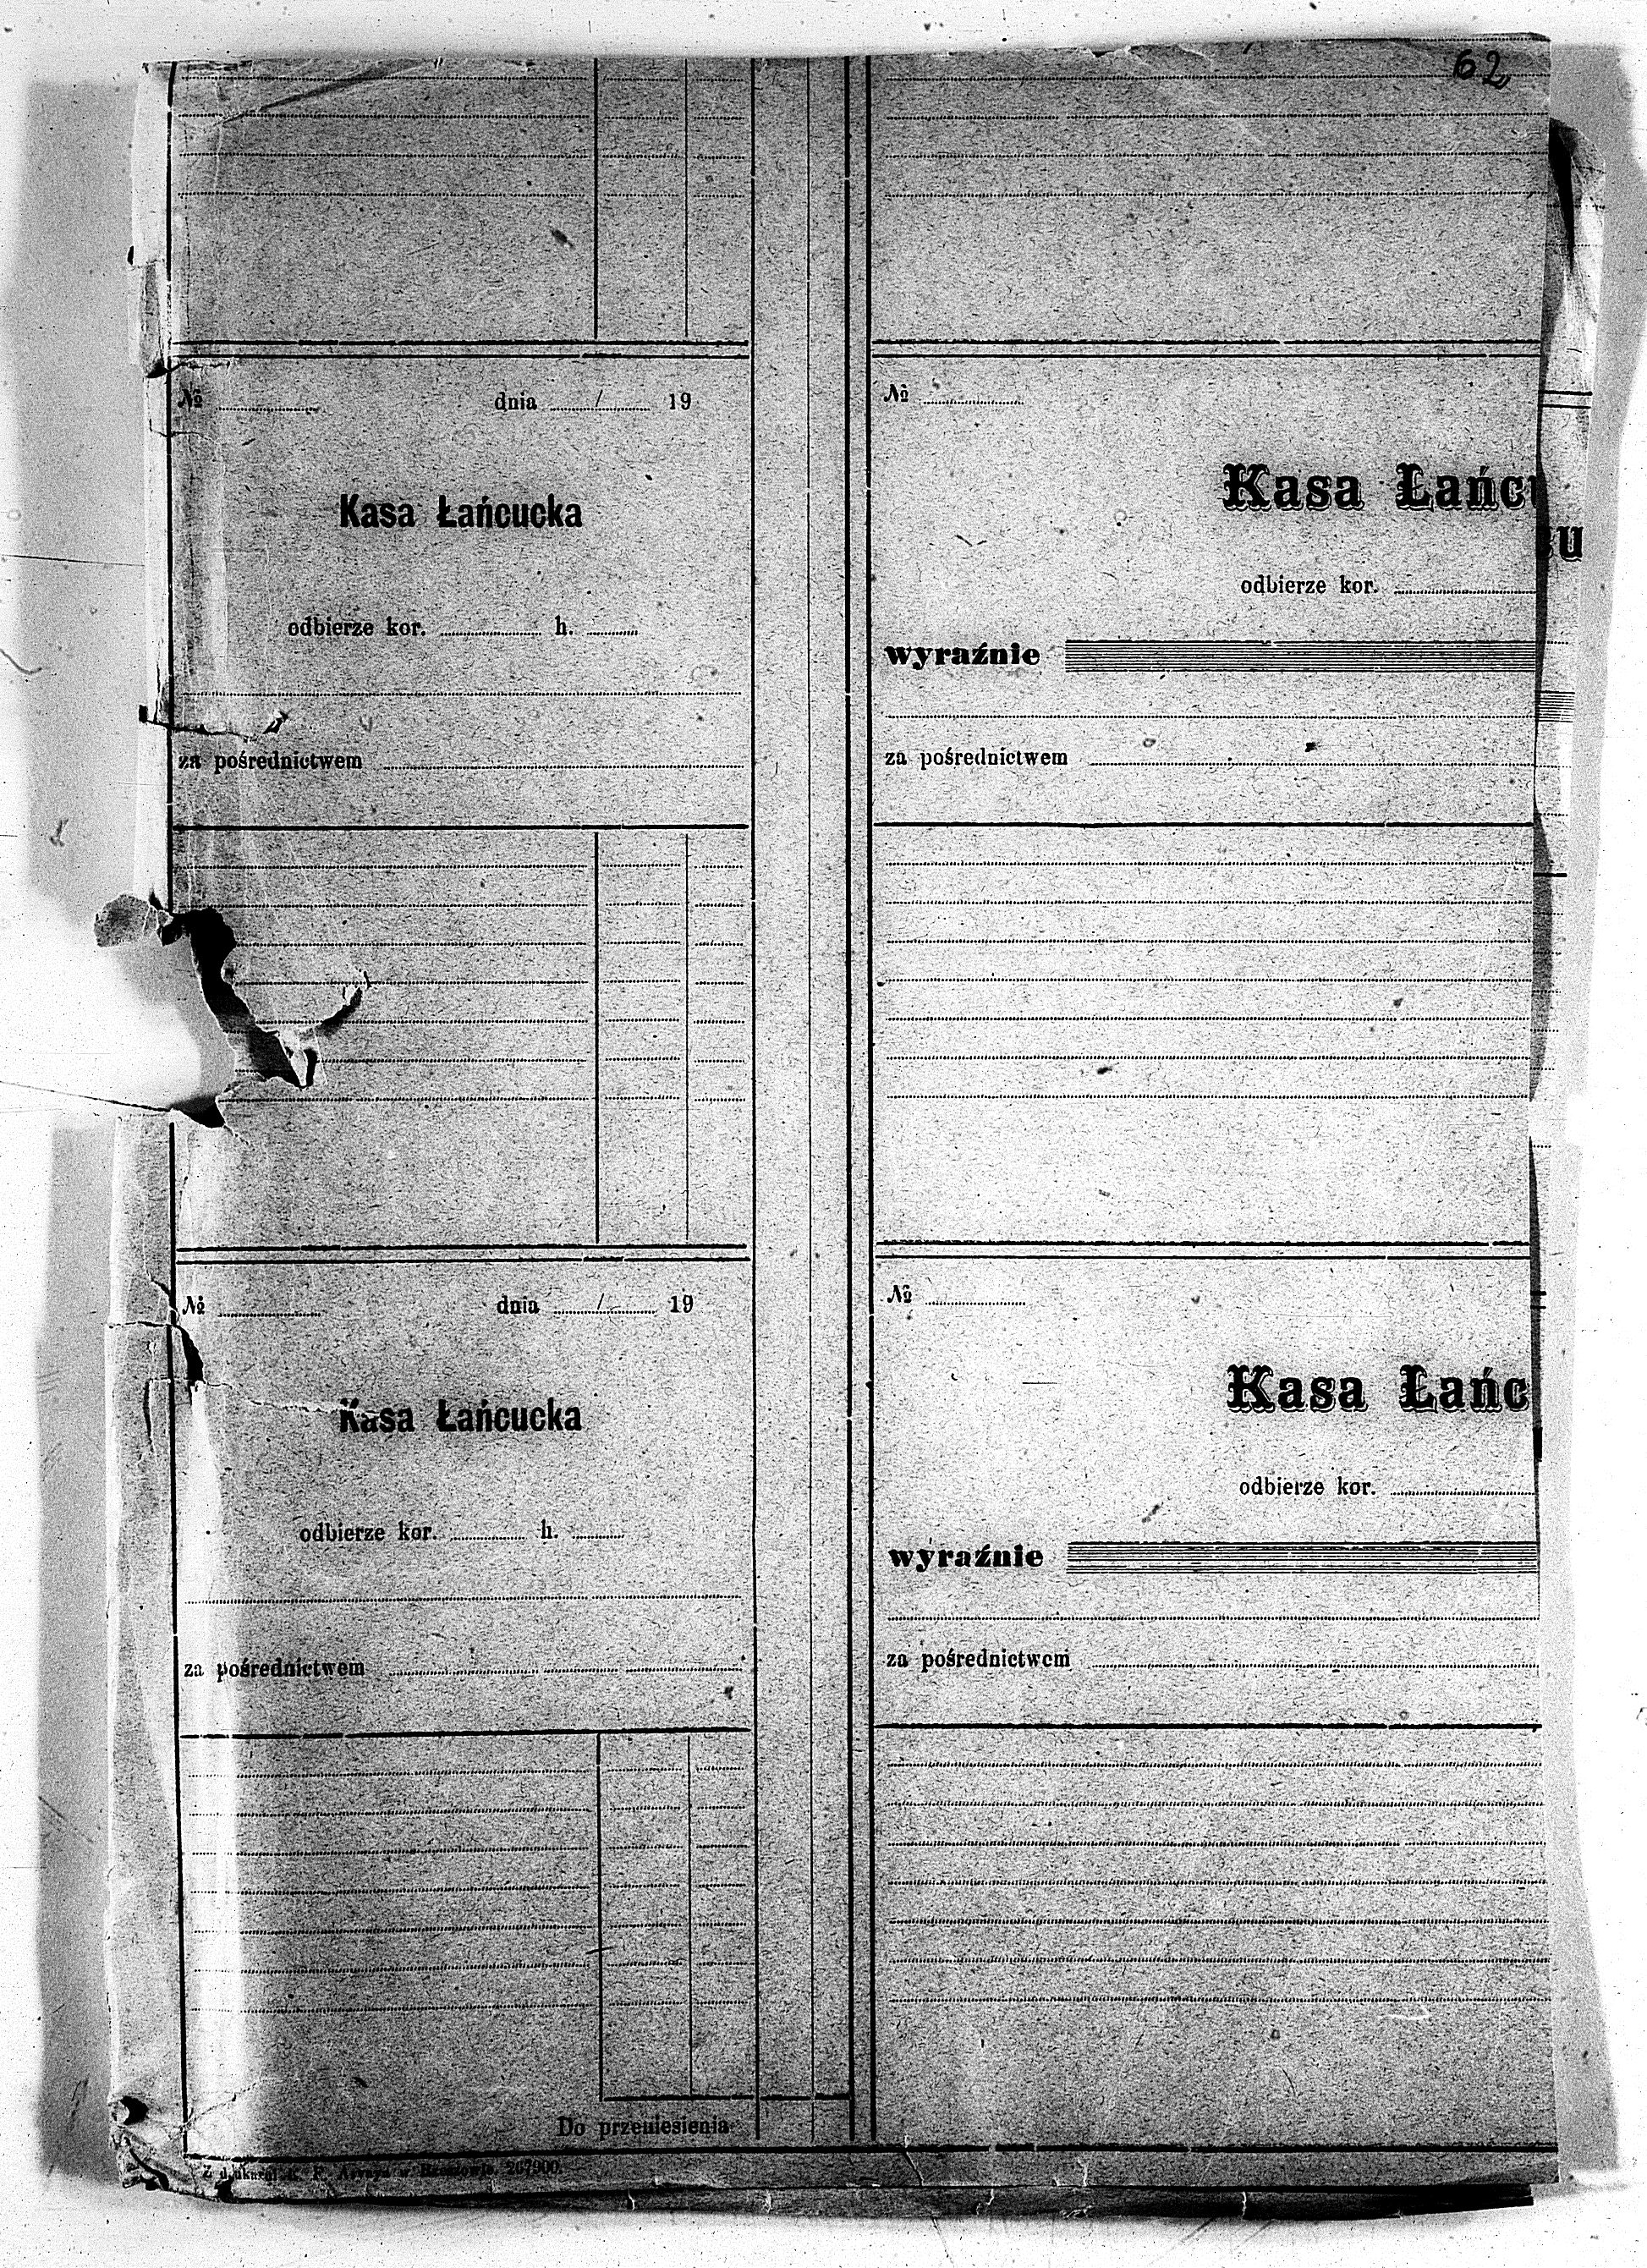 62
№ dnia / 19
Kasa Łańcucka
odbierze kor. h.
za pośrednictwem
№
Kasa Łańcu
cu
odbierze kor.
wyraźnie
za pośrednictwem
№ dnia / 19
Kasa Łańcucka
odbierze kor. h.
za pośrednictwem
Do przeniesienia
№
Kasa Łańc
odbierze kor.
wyraźnie
za pośrednictwem
Z drukarni w Rzeszowie. 267900